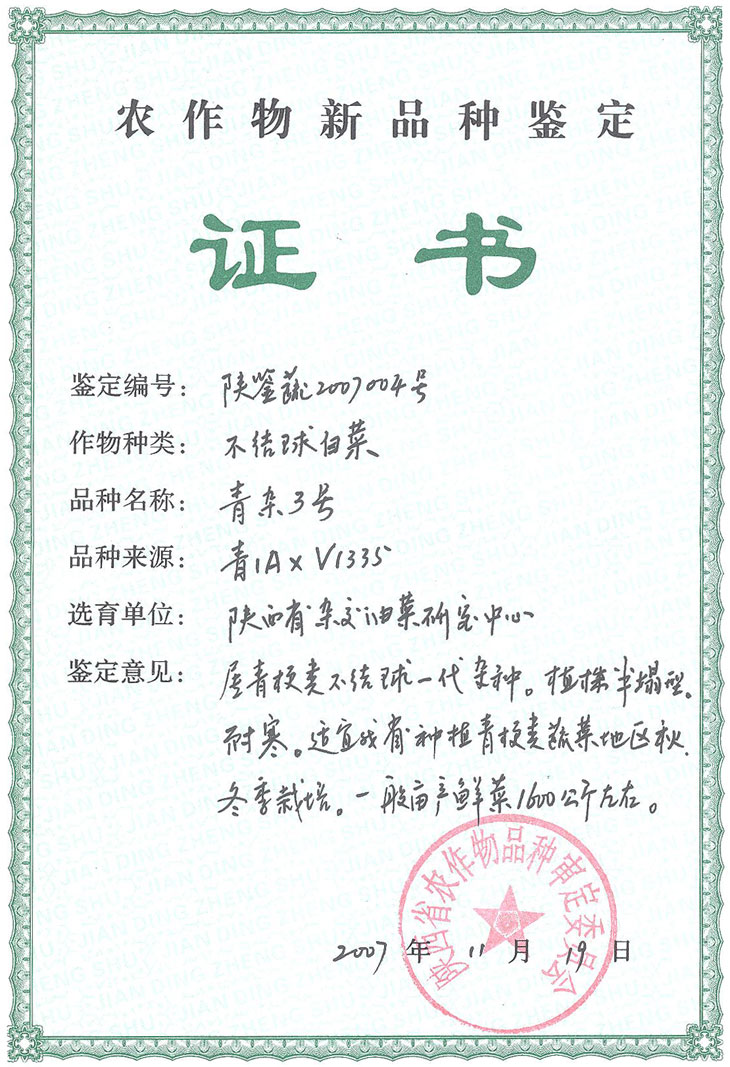 农作物新品种鉴定
证书
鉴定编号：陕鉴蔬2007004号
作物种类：不结球白菜
品种名称：青杂3号
品种来源：青1A×V1335
选育单位：陕西省杂交油菜研究中心
鉴定意见：属青梗类不结球一代杂种。植株半塌型。
耐寒。适宜我省种植青梗类蔬菜地区秋.
冬季栽培。一般亩产鲜菜1600公斤左右。
陕西省农作物品种审定委员会
2007年11月19日